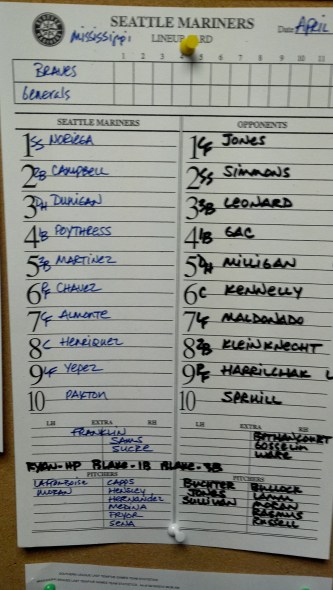 SEATTLE MARINERS
Date APRIL
Mississippi
LINEUP CARD
1 2 3 4 5 6 7 8 9 10 11
BRAVES
Generals
SEATTLE MARINERS
OPPONENTS
1 SS NORIEGA
1 CF JONES
2 RB CAMPBELL
2 SS SIMMONS
3 DH DUNIGAN
3 3B LEONARD
4 1B POYTHRESS
4 1B GAC
5 3B MARTINEZ
5 DH MILLIGAN
6 RF CHAVEZ
6 C KENNELLY
7 CF ALMONTE
7 LF MALDONADO
8 C HENRIQUEZ
8 2B KLEINKNECHT
9 LF YEPEZ
9 RF HARRILCHAK L
10 PAXTON
10 SPRUILL
LH EXTRA RH
LH EXTRA RH
FRANKLIN
BETHANCOURT
SAMS
GOSSELIN
SUCRE
WARE
RYAN-HP BLAKE-1B BLAKE-3B
PITCHERS
PITCHERS
LAFRAMBOISE CAPPS
BUCHTER BULLOCK
MORAN HENSLEY
JONES LAMM
HERNANDEZ
SULLIVAN
MEDINA
RASMUS
PRYOR
RUSSELL
SENA